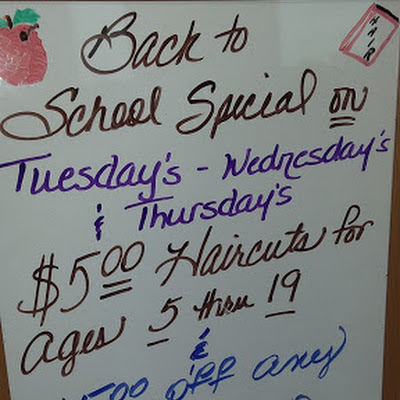 HAIR
Back to
School Special on
Tuesday's - Wednesday's
& Thursday's
$5.00 Haircuts for
Ages 5 thru 19
&
off any